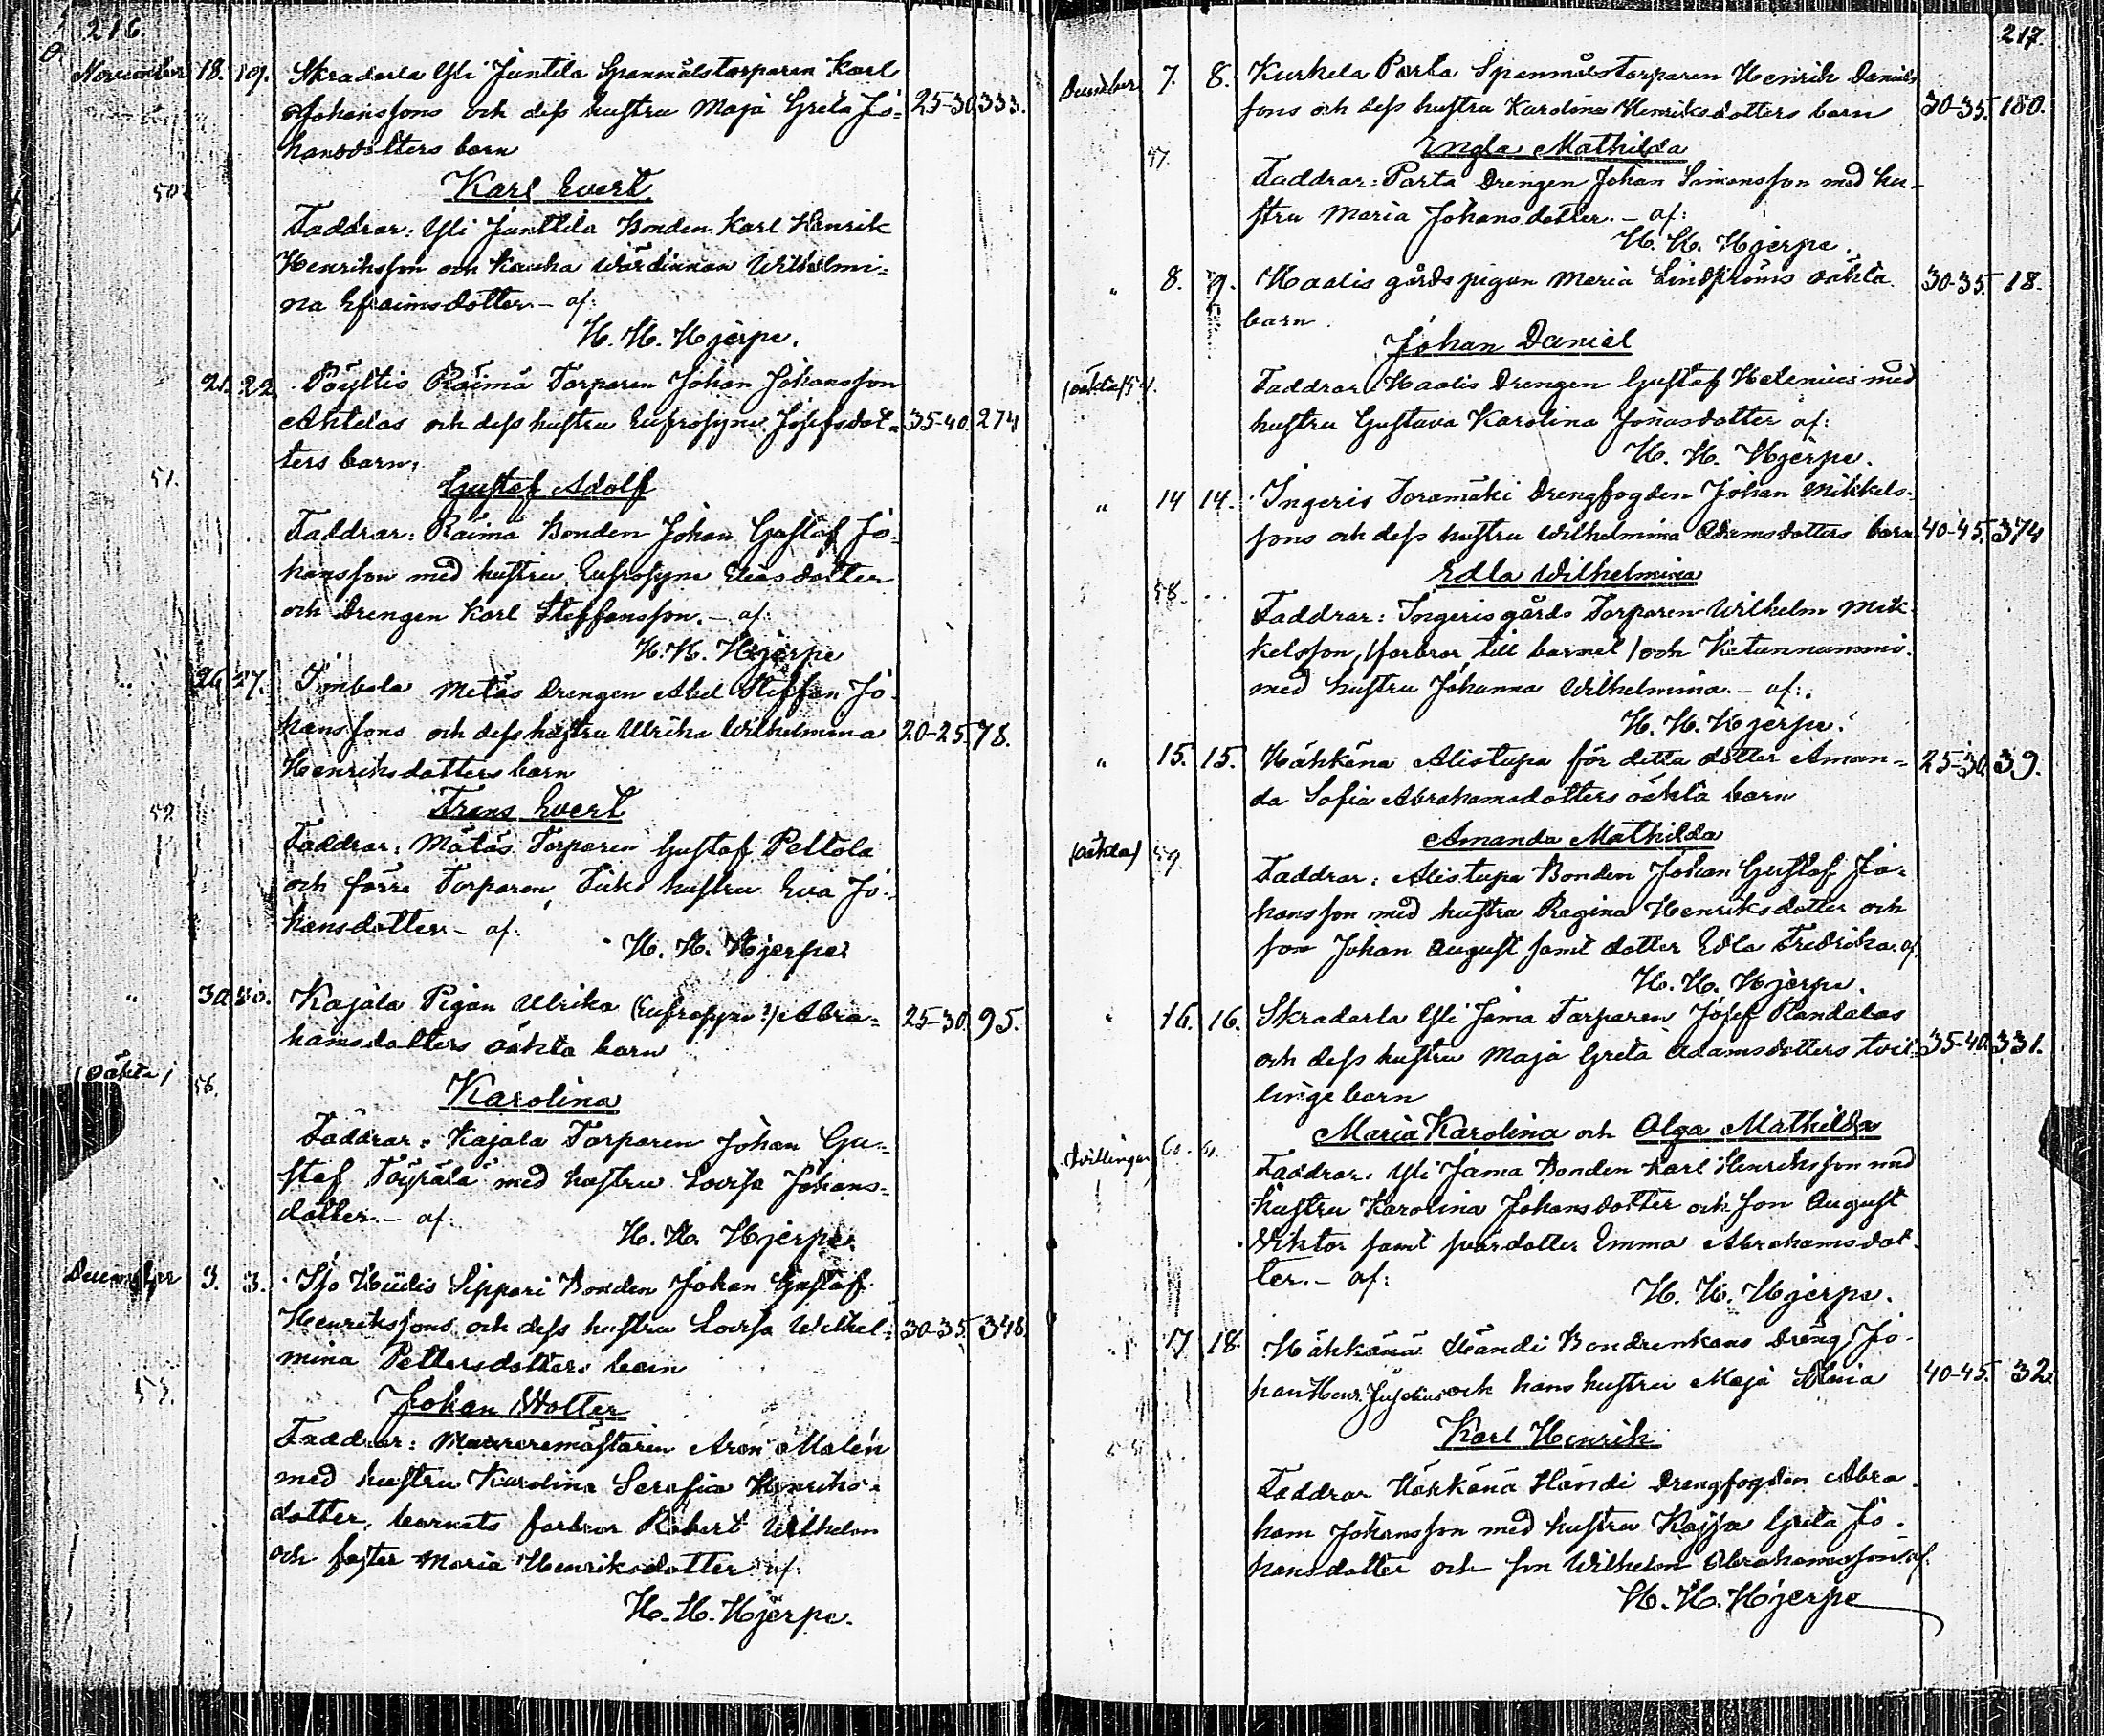 216.
November 18. 19. Skradarla Yli Juntila Spanmålstorparen Karl
Johanssons och dess hustru Maja Greta Jo= 25-30. 333.
hansdotters barn
50.
Karl Evert.
Faddrar: Yli Junttila Bonden Karl Henrik
Henriksson och Kauha Wärdinnan Wilhelmi=
na Efraimsdotter. - af:
H. H. Hjerpe.
21. 22. Pöyltis Raimä Torparen Johan Johansson
Ahtelas och dess hustru Eufrosyne Josefsdot= 35-40. 274
ters barn,
51.
Gustaf Adolf
Faddrar: Raima Bonden Johan Gustaf Jo=
hansson med hustru Eufrosyne Eliasdotter
och Drengen Karl Steffansson. - af:
H. H. Hjerpe
" 26 27. Simbola Metäs Drengen Abel Steffan Jo=
hanssons och dess hustru Ulrika Wilhelmina 20-25. 78.
Henriksdotters barn
52.
Frans Evert
Faddrar: Mätäs Torparen Gustaf Peltola
och förre Torparen, hustru Eva Jo=
hansdotter - af:
H. H. Hjerpe
" 30. 30. Kajala Pigan Ulrika (Eufrosyne?) Abra= 25-30. 95.
hamsdotters oäkta barn
(oäkta) 56.
Karolina
Faddrar: Kajala Torparen Johan Gu=
staf Töyrälä med hustru Lovisa Johans=
dotter. - af:
H. H. Hjerpe.
December 3. 3. Iso Hiidis Sippari Bonden Johan Gustaf
Henrikssons och dess hustru Lovisa Wilhel= 30-35. 348.
mina Pettersdotters barn
53.
Johan Wolter
Faddrar: Muraremästaren Aron Malén
med hustru Karolina Serafia Henriks=
dotter, barnets farbror Robert Wilhelm
och faster Maria Henriksdotter af:
H. H. Hjerpe.
217.
December 7. 8. Kurkela Parta Spanmålstorparen Henrik Daniels
sons och dess hustru Karolina Henriksdotters barn 30-35. 180.
57.
Engla Mathilda
Faddrar: Parta Drengen Johan Simonsson med hu=
stru Maria Johansdotter. - af:
H. H. Hjerpe.
" 8. 9. Haalis gårds pigan Maria Lindströms oäkta 30-35. 18.
barn
Johan Daniel
(oäkta) 54. Faddrar: Haalis Drengen Gustaf Helenius med
hustru Gustava Karolina Jonasdotter af:
H. H. Hjerpe.
" 14 14. Ingeris Toramäki Drengfogden Johan Mikkels=
sons och dess hustru Wilhelmina Adamsdotters barn 40-45. 374
58.
Edla Wilhelmina
Faddrar: Ingerisgårds Torparen Wilhelm Mik=
kelsson, (farbror till barnet) och Ketunnummi
med hustru Johanna Wilhelmina. - af:
H. H. Hjerpe.
" 15. 15. Hähkänä Alistupa för detta dotter Aman= 25-30. 39.
da Sofia Abrahamsdotters oäkta barn
Amanda Mathilda
(oäkta) 59. Faddrar: Alistupa Bonden Johan Gustaf Jo=
hansson med hustru Regina Henriksdotter och
son Johan August samt dotter Edla Fredrika. af
H. H. Hjerpe.
16. 16. Skradarla Yli Jama Torparen Josef Randalas
och dess hustru Maja Greta Adamsdotters tvil= 35-40. 331.
linge barn
Maria Karolina och Olga Mathilda
Tvillingar 60. 61. Faddrar: Yli Jama Bonden Karl Henriksson med
hustru Karolina Johansdotter och son August
Viktor samt pardotter Emma Abrahamsdot=
ter. - af:
H. H. Hjerpe.
17 18. Hähkänä Händi Bondenkans Dreng Jo=
han Henr. och hans hustru Maja Maria 40-45. 32
Karl Henrik
Faddrar Hähkänä Händi Drengfogden Abra
ham Johansson med hustru Kajsa Greta Jo=
hansdotter och son Wilhelm Abrahamsson af:
H. H. Hjerpe